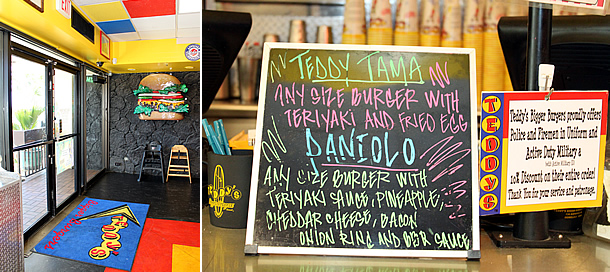 EXIT
Teddy's
TEDDY TAMA
ANY SIZE BURGER WITH
TERIYAKI AND FRIED EGG
DANIOLO
ANY SIZE BURGER WITH
TERIYAKI SAUCE, PINEAPPLE,
CHEDDAR CHEESE, BACON
ONION RING AND BBR SAUCE
TEDDYS
Teddy's Bigger Burgers proudly offers
Police and Firemen in Uniform and
Active Duty Military a
with Active Military ID
10% Discount on their entire order!
Thank You for your service and patronage.